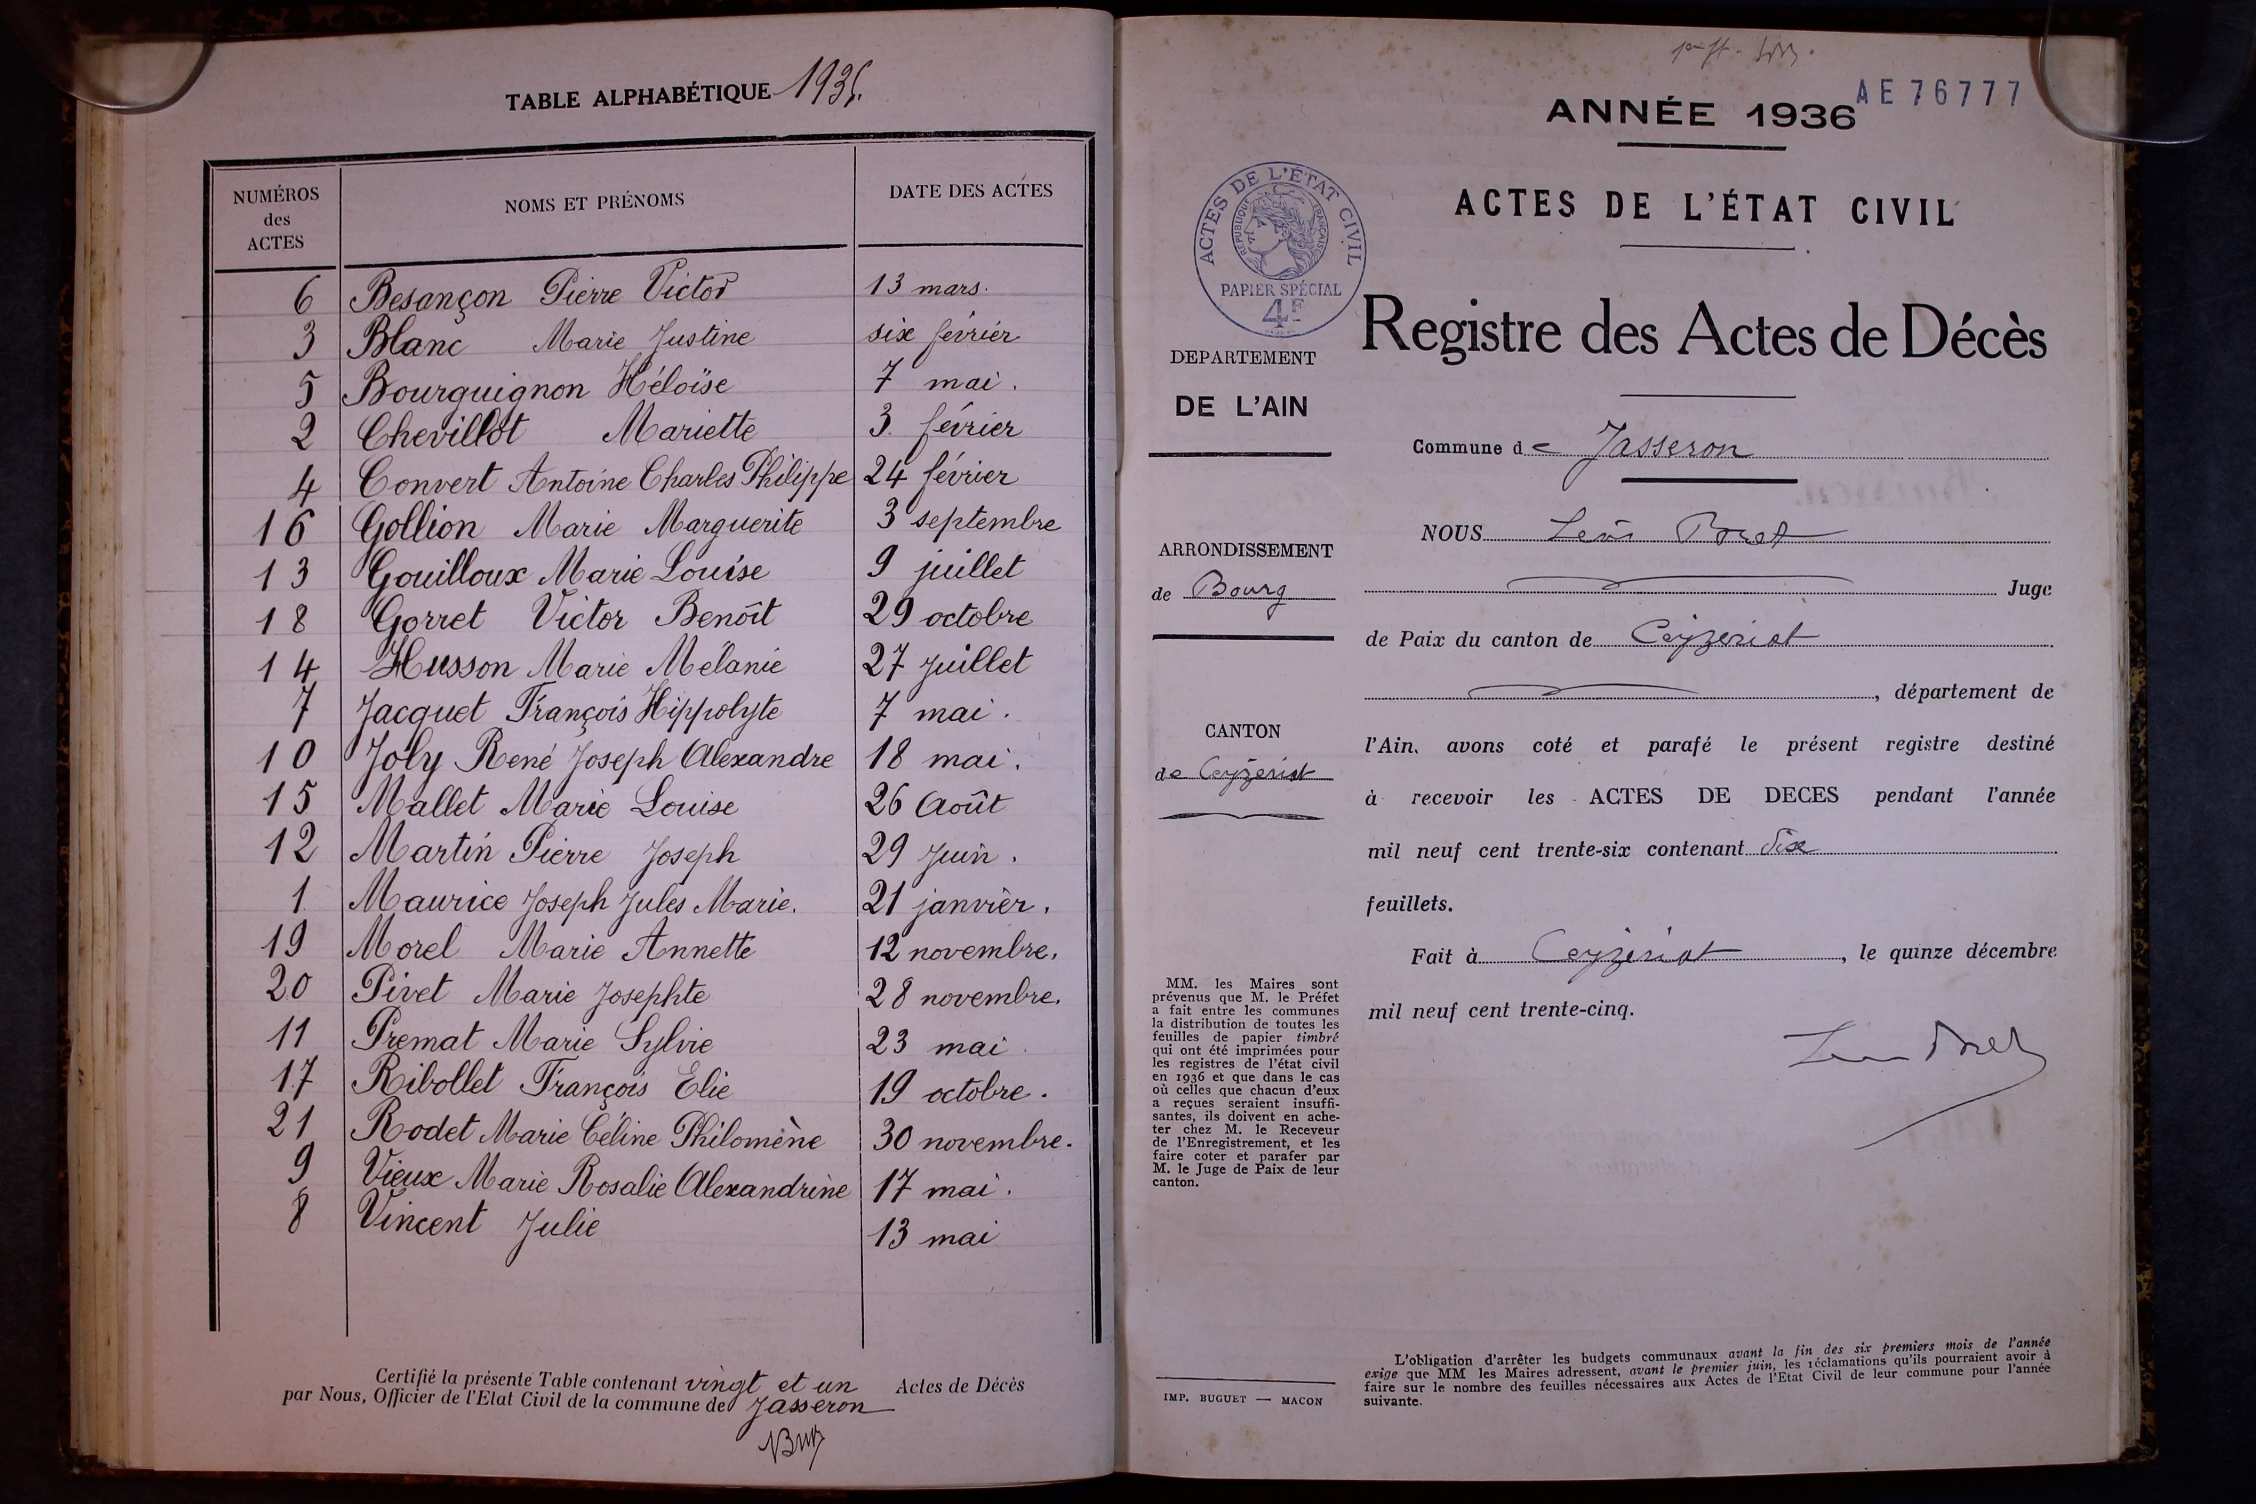 TABLE ALPHABÉTIQUE 1935.
NUMÉROS des ACTES | NOMS ET PRÉNOMS | DATE DES ACTES
6 Besançon Pierre Victor 13 mars.
3 Blanc Marie Justine six février
5 Bourguignon Héloïse 7 mai.
2 Chevillot Mariette 3 février
4 Convert Antoine Charles Philippe 24 février
16 Gollion Marie Marguerite 3 septembre
13 Gouilloux Marie Louise 9 juillet
18 Gorret Victor Benoît 29 octobre
14 Husson Marie Mélanie 27 juillet
7 Jacquet François Hippolyte 7 mai.
10 Joly René Joseph Alexandre 18 mai.
15 Mallet Marie Louise 26 Août
12 Martin Pierre Joseph 29 Juin.
1 Maurice Joseph Jules Marie. 21 janvier.
19 Morel Marie Annette 12 novembre.
20 Pivet Marie Josephte 28 novembre.
11 Premat Marie Sylvie 23 mai
17 Ribollet François Elie 19 octobre.
21 Rodet Marie Céline Philomène 30 novembre.
9 Vieux Marie Rosalie Alexandrine 17 mai.
8 Vincent Julie 13 mai
Certifié la présente Table contenant vingt et un Actes de Décès
par Nous, Officier de l'Etat Civil de la commune de Jasseron
AE 76777
ANNÉE 1936
ACTES DE L'ÉTAT CIVIL
ACTES DE L'ÉTAT CIVIL
RÉPUBLIQUE FRANÇAISE
PAPIER SPÉCIAL
4F
Registre des Actes de Décès
DEPARTEMENT
DE L'AIN
Commune de Jasseron
NOUS Léon Boret
ARRONDISSEMENT
de Bourg
Juge
de Paix du canton de Ceyzeriat
, département de
CANTON
de Ceyzériat
l'Ain, avons coté et parafé le présent registre destiné
à recevoir les ACTES DE DECES pendant l'année
mil neuf cent trente-six contenant dix
feuillets.
Fait à Ceyzériat, le quinze décembre
mil neuf cent trente-cinq.
MM. les Maires sont
prévenus que M. le Préfet
a fait entre les communes
la distribution de toutes les
feuilles de papier timbré
qui ont été imprimées pour
les registres de l'état civil
en 1936 et que dans le cas
où celles que chacun d'eux
a reçues seraient insuffi-
santes, ils doivent en ache-
ter chez M. le Receveur
de l'Enregistrement, et les
faire coter et parafer par
M. le Juge de Paix de leur
canton.
IMP. BUGUET — MACON
L'obligation d'arrêter les budgets communaux avant la fin des six premiers mois de l'année
exige que MM les Maires adressent, avant le premier juin, les réclamations qu'ils pourraient avoir à
faire sur le nombre des feuilles nécessaires aux Actes de l'Etat Civil de leur commune pour l'année
suivante.